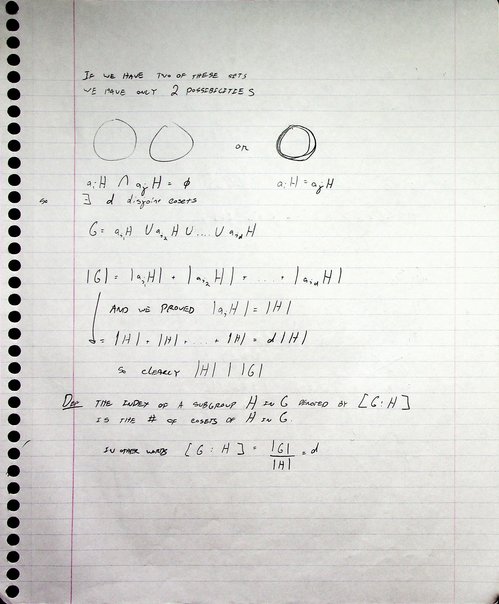 IF WE HAVE TWO OF THESE SETS
WE HAVE ONLY 2 POSSIBILITIES
OR
aᵢH ∩ aⱼH = ∅
aᵢH = aⱼH
SO ∃ d disjoint cosets
G = aᵢ₁H ∪ aᵢ₂H ∪ .... ∪ aᵢdH
|G| = |aᵢ₁H| + |aᵢ₂H| + .... + |aᵢdH|
AND WE PROVED |aᵢH| = |H|
= |H| + |H| + ... + |H| = d|H|
SO CLEARLY |H| | |G|
DEF THE INDEX OF A SUBGROUP H IN G DENOTED BY [G:H]
IS THE # OF COSETS OF H IN G.
IN OTHER WORDS [G:H] = |G|/|H| = d